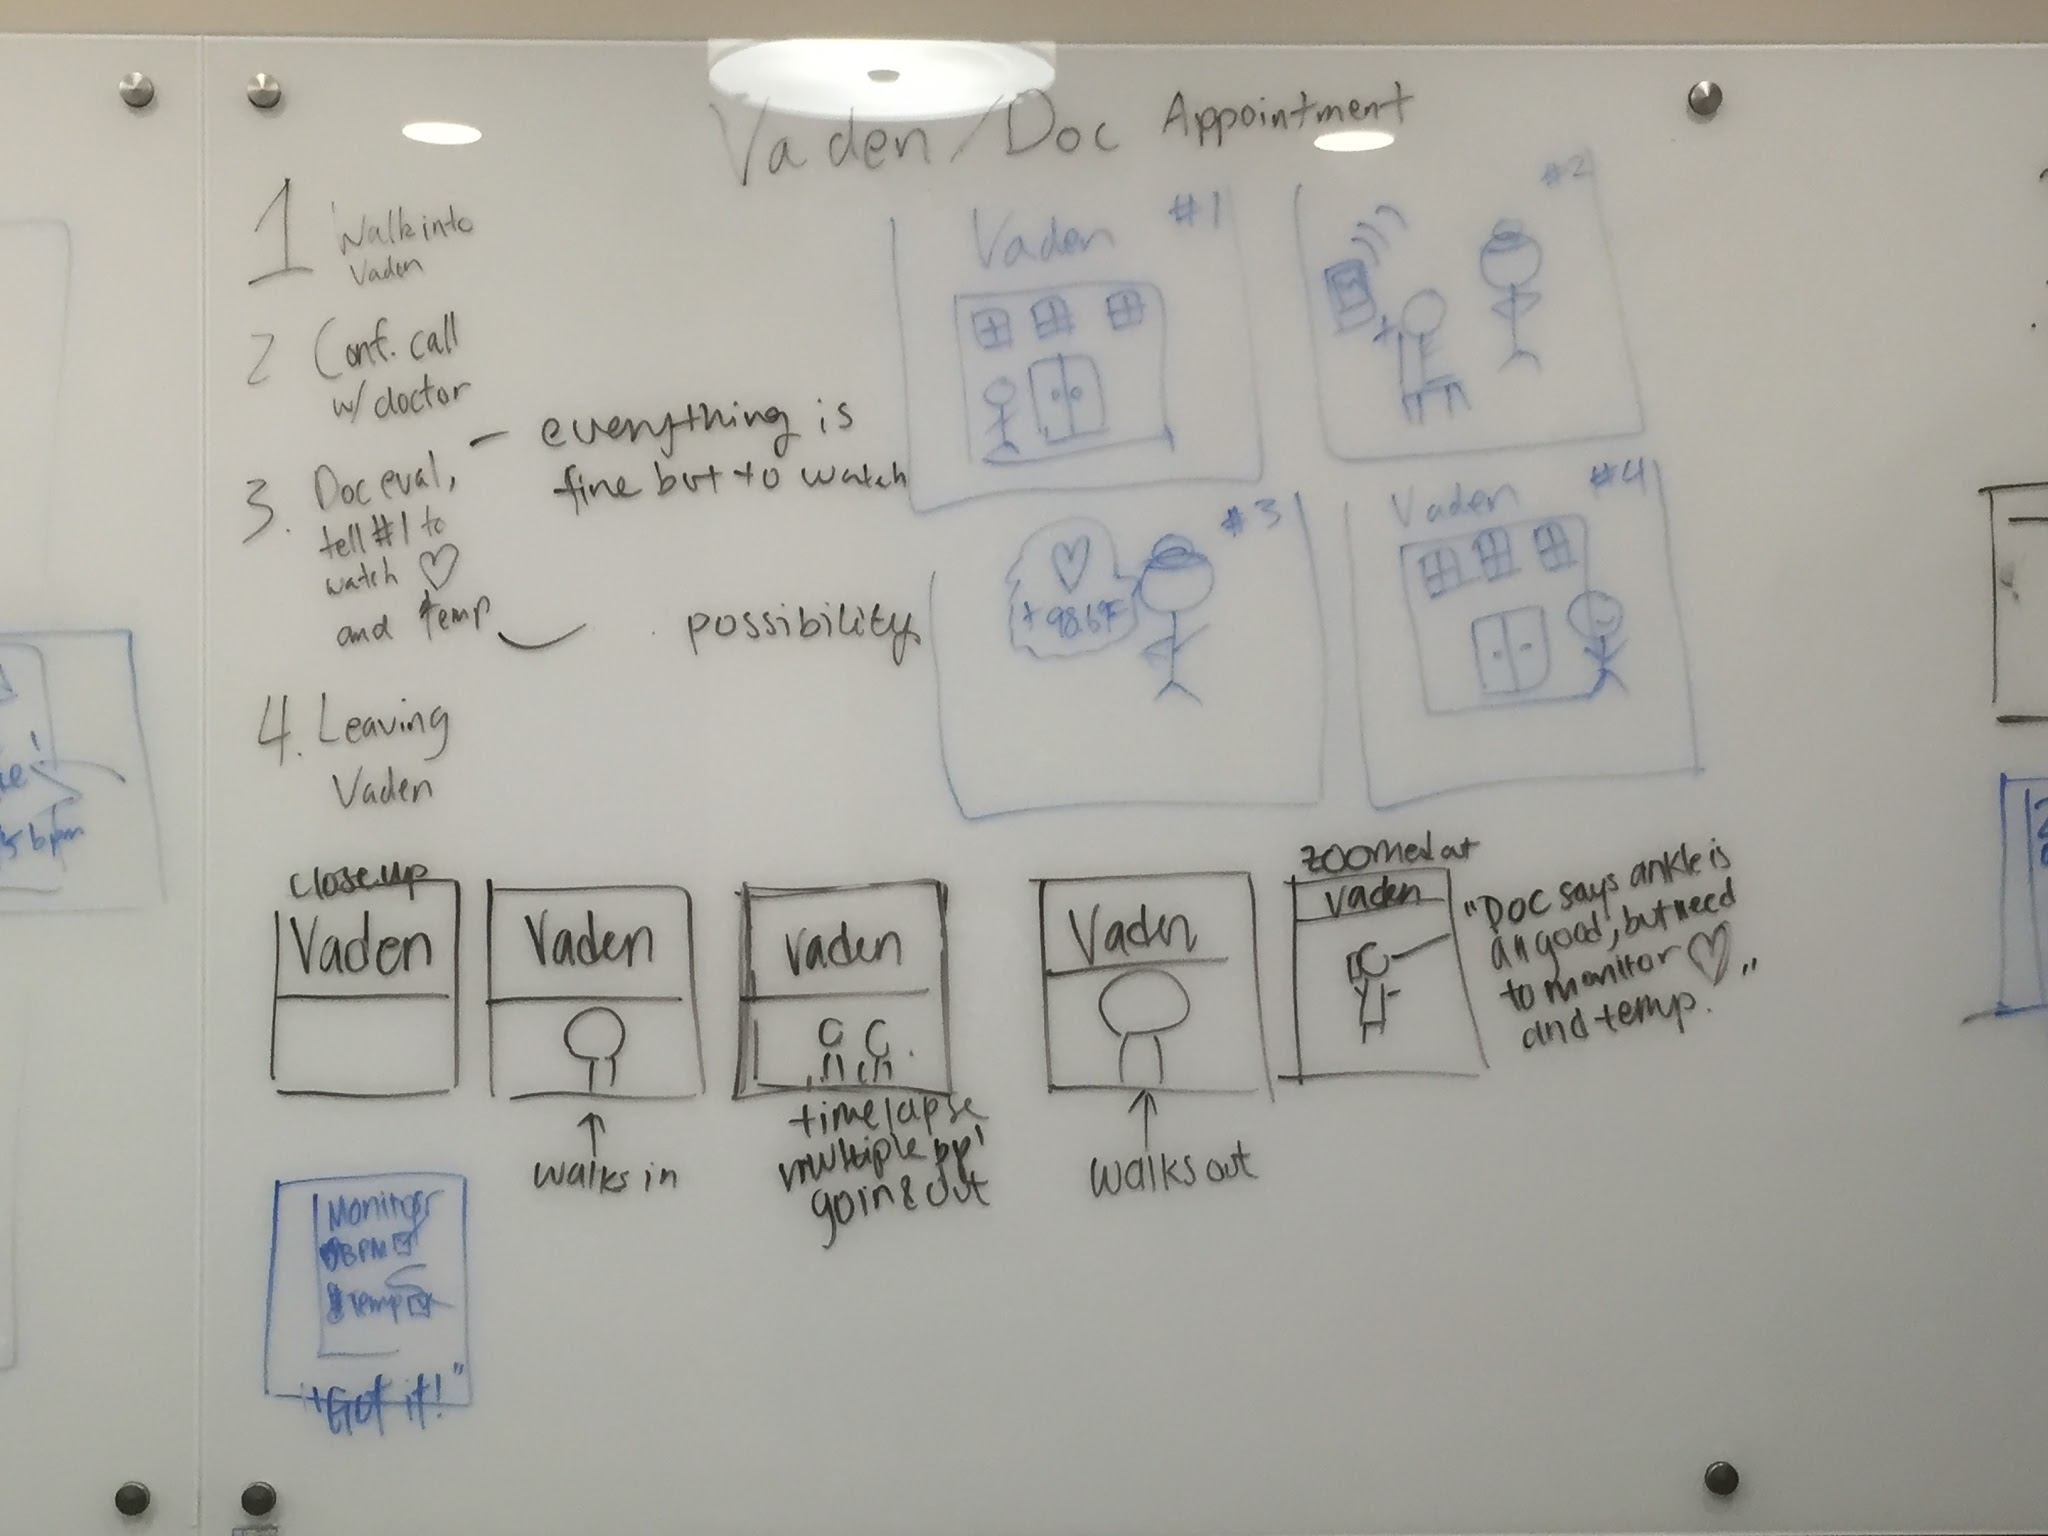 Vaden/Doc Appointment
1 Walk into
Vaden
2 Conf. call
w/ doctor
3. Doc eval,
tell #1 to
watch ♡
and temp
- everything is
fine but to watch
possibility
4. Leaving
Vaden
#1
Vaden
#2
#3
♡
+ 98.6°F
#4
Vaden
close up
Vaden
Vaden
walks in
Vaden
timelapse
multiple ppl
go in & out
Vaden
walks out
zoomed out
Vaden
"Doc says ankle is
all good, but need
to monitor ♡"
and temp.
Monitor
BPM
Temp
"Got it!"
5 bpm